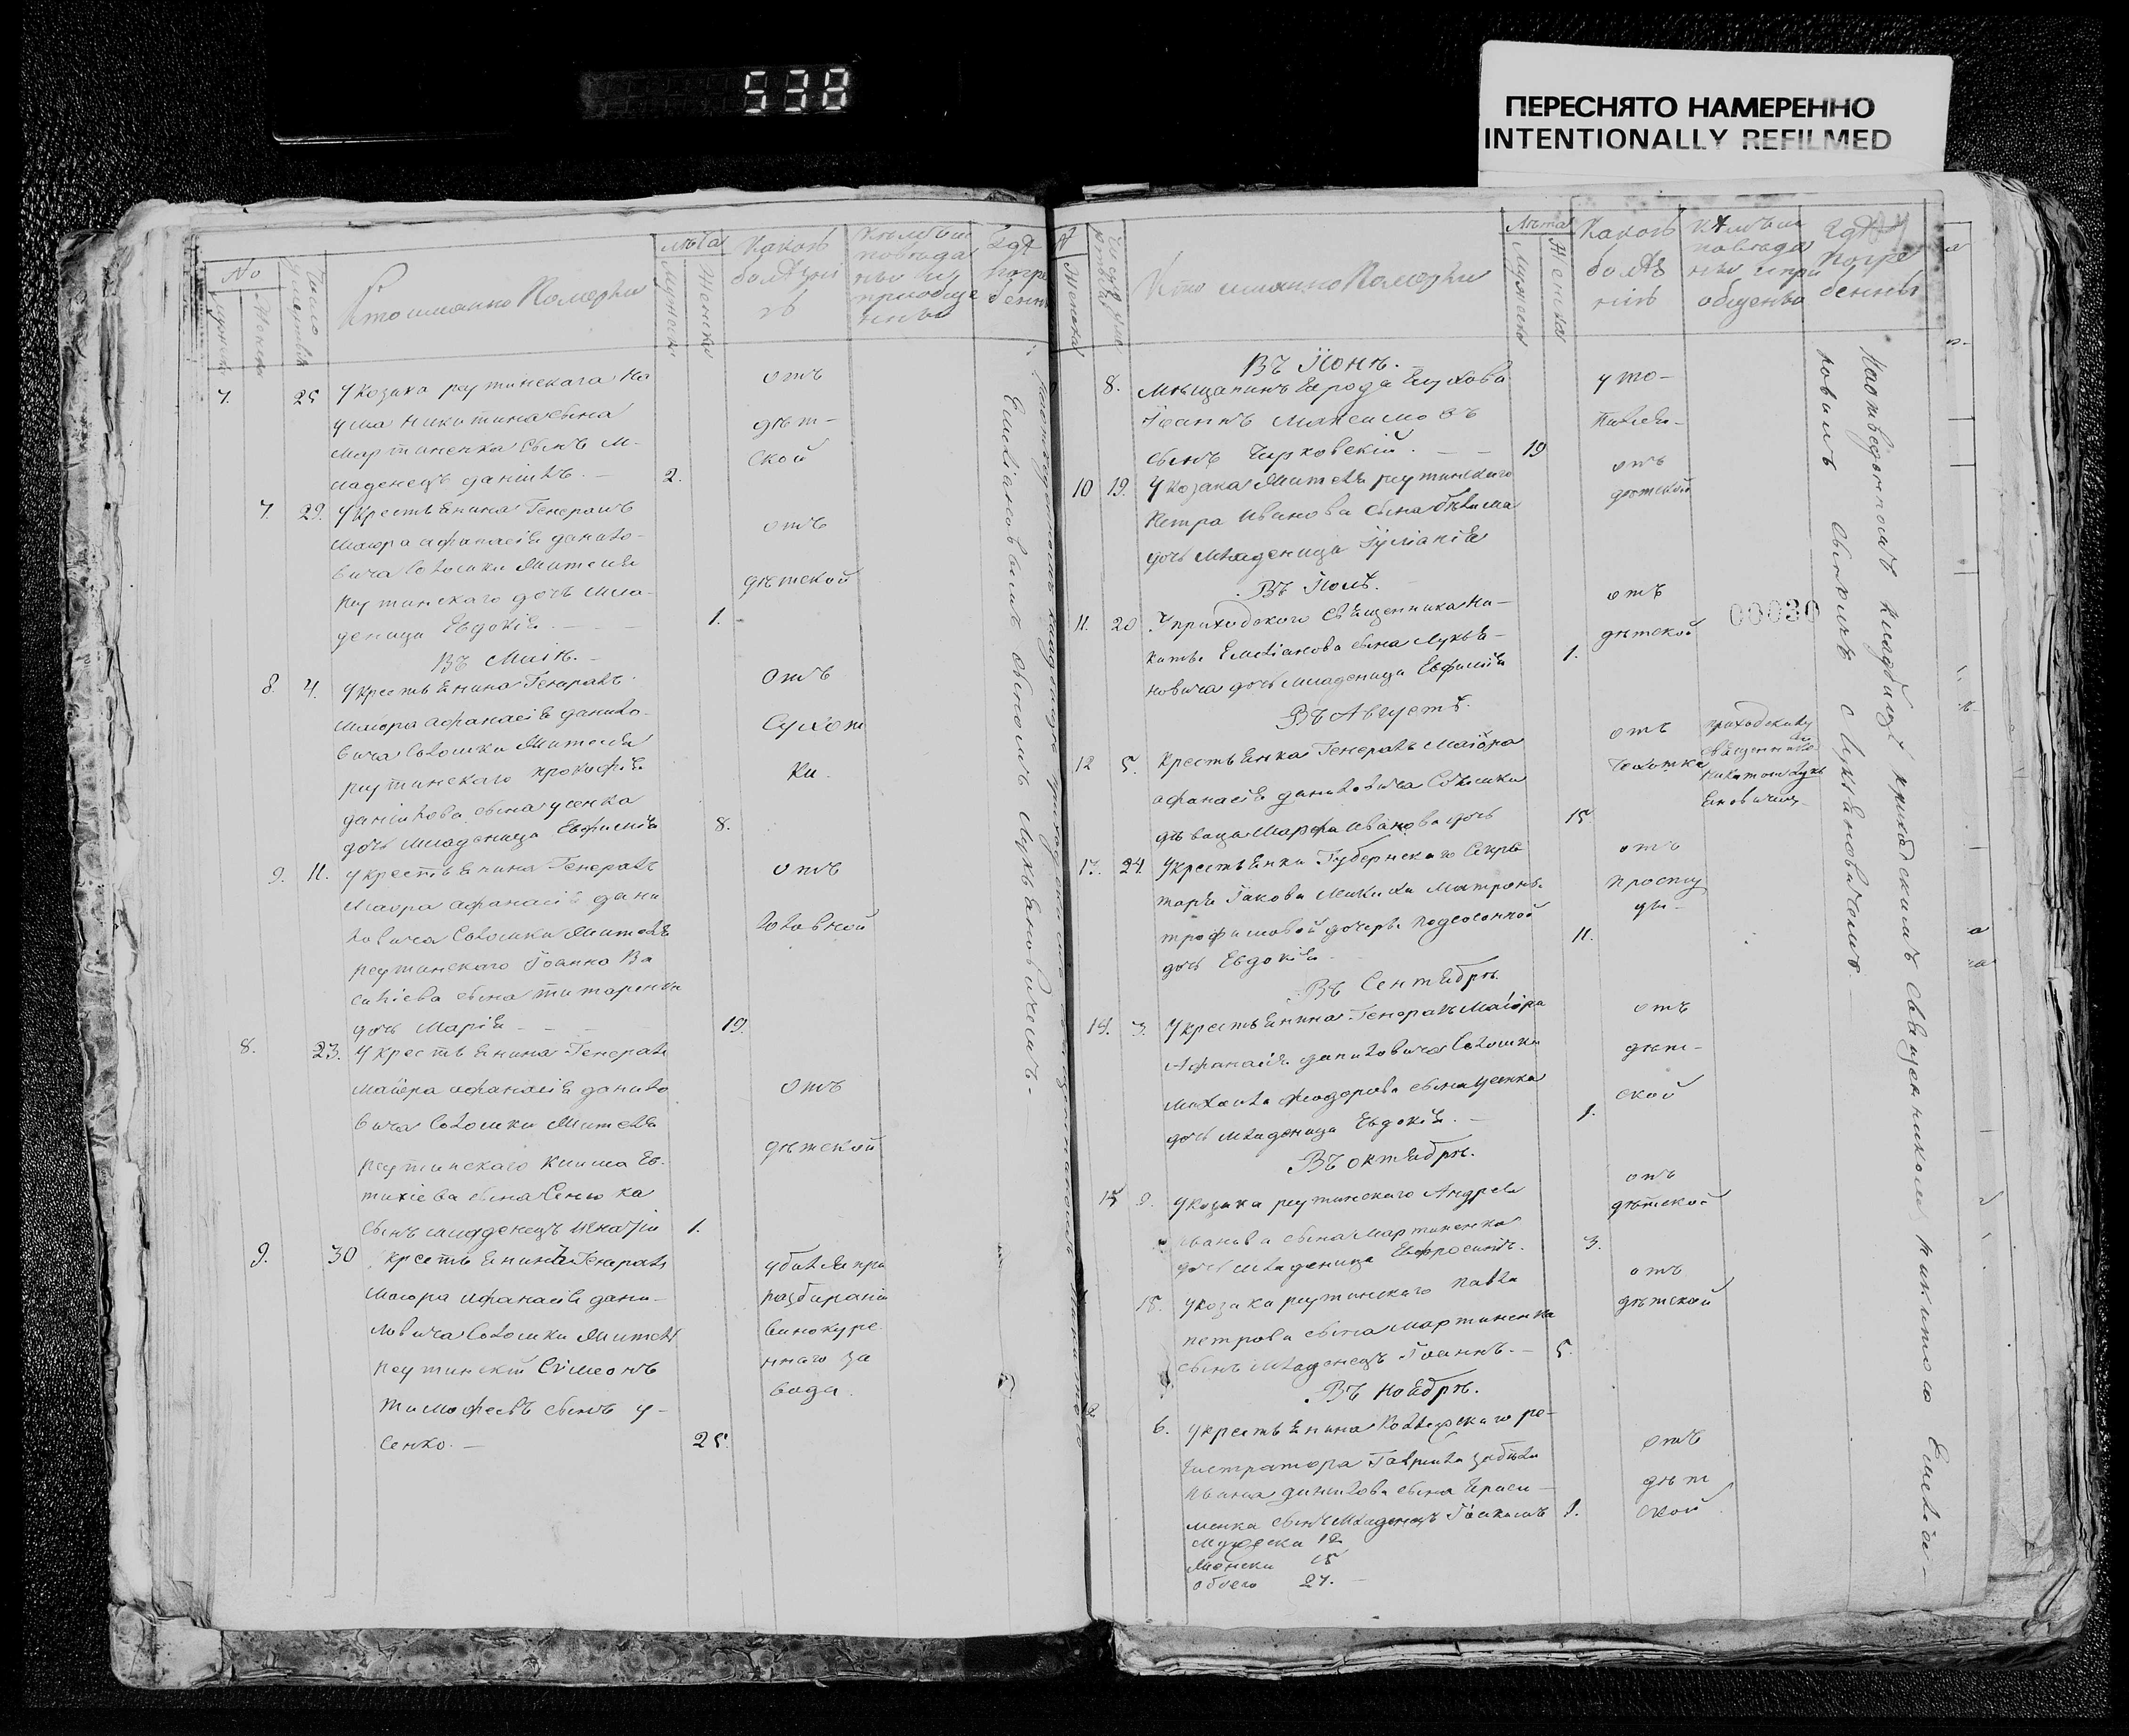 538
ПЕРЕСНЯТО НАМЕРЕННО
INTENTIONALLY REFILMED
№
Число
Кто имянно Померли
лѣта
Какою
болѣзнi
ѣ
Где
погре
бенны
7. 25 У Козака реутинскаго На
ума Никитина сына
мартиненка сынъ м-
ладенецъ данiилъ. — 2.
отъ
дѣт-
ской
7. 29. У Крестьянина Генералъ
Маiора афанасiя данило-
вича Соломки Жителя
реутинскаго дочь мла-
деница Евдокiя — — 1.
отъ
дѣтской
Въ Маiѣ. —
8. 4. У крестьянина Генералъ
Маiора афанасiя данило-
вича Соломки Жителя
реутинскаго прокофiя
данiилова сына усенка
дочь младеница Евфимiя 8.
отъ
Сухот
ки.
9. 11. У крестьянина Генералъ
Маiора афанасiя дани
ловича Соломки Жителя
реутинскаго Iоанна Ва
силiева сына титаренка
дочь Марiя — — 19.
отъ
головной
8. 23. У крестьянина Генералъ
маiора афанасiя данило
вича Соломки Жителя
реутинскаго Клима Ев-
тихiева сына Сенюка
сынъ младенецъ Игнатiй 1.
отъ
дѣтской
9. 30 крестьянинъ Генералъ
Маiора афанасiя дани-
ловича Соломки Жител
реутинскiй Сѵмеонъ
тимофеевъ сынъ у-
сенко. — 25.
убился при
разбиранiи
винокуре-
ннаго за
вода.
Емелiановымъ сыномъ Лукьяновичемъ. —
№
Женска
Кто имянно Померли
Лѣта
Мужеска
Женска
Какою
болѣз
нiю
Кѣмъ
Где
погре
бенны
Въ Iюнѣ.
8. Мѣщанинъ города Глухова
Iоаннъ Максимовъ
сынъ Чирковскiй. — — 19
уто-
10 19. У козака Жителя реутинскаго
Петра Иванова сына
дочь младеница Iулианiя
отъ
дѣтской
Въ Iюлѣ.
11. 20 У приходскаго Священника Ни-
киты Емелiанова сына Лукья-
новича дочь младеница Евфимiя 1.
отъ
дѣтской
00030
Въ Августѣ.
12 5. Крестьянка Генералъ Маiора
афанасiя даниловича Соломки
дѣвица Марфа Иванова дочь 15
отъ
Чахотки
приходскимъ
священнико
Никитою Лукь
яновичемъ
13. 24. У крестьянки Губернскаго Секре
таря Iакова Матроны
трофимовой дочери
дочь Евдокiя — 11.
отъ
простуды —
Въ Сентябрѣ.
14. 3. У крестьянина Генералъ Маiора
Афанасiя даниловича Соломки
Михаила феодорова сына усенка
дочь младеница Евдокiя. — 1.
отъ
дѣт-
ской
Въ октябрѣ.
15 9. У козака реутинскаго Андрея
иванова сына мартиненка
дочь младеница Евфросинiя. 3.
отъ
дѣтской
18. У козака реутинскаго Павла
петрова сына мартиненка
сынъ младенецъ Iоаннъ. — 5.
отъ
дѣтской
Въ Ноябрѣ.
12 6. У крестьянина Коллежскаго ре-
гистратора Гаврила забѣлы
Ивана данилова сына Гераси-
менка сынъ младенецъ Iоакимъ 1.
отъ
дѣт
ской
Мужеска 12
Женска 15
обоего 27. —
На отведенномъ кладбищѣ приходскимъ священникомъ никитою Емелiа-
новымъ сыномъ Лукьяновичемъ. —